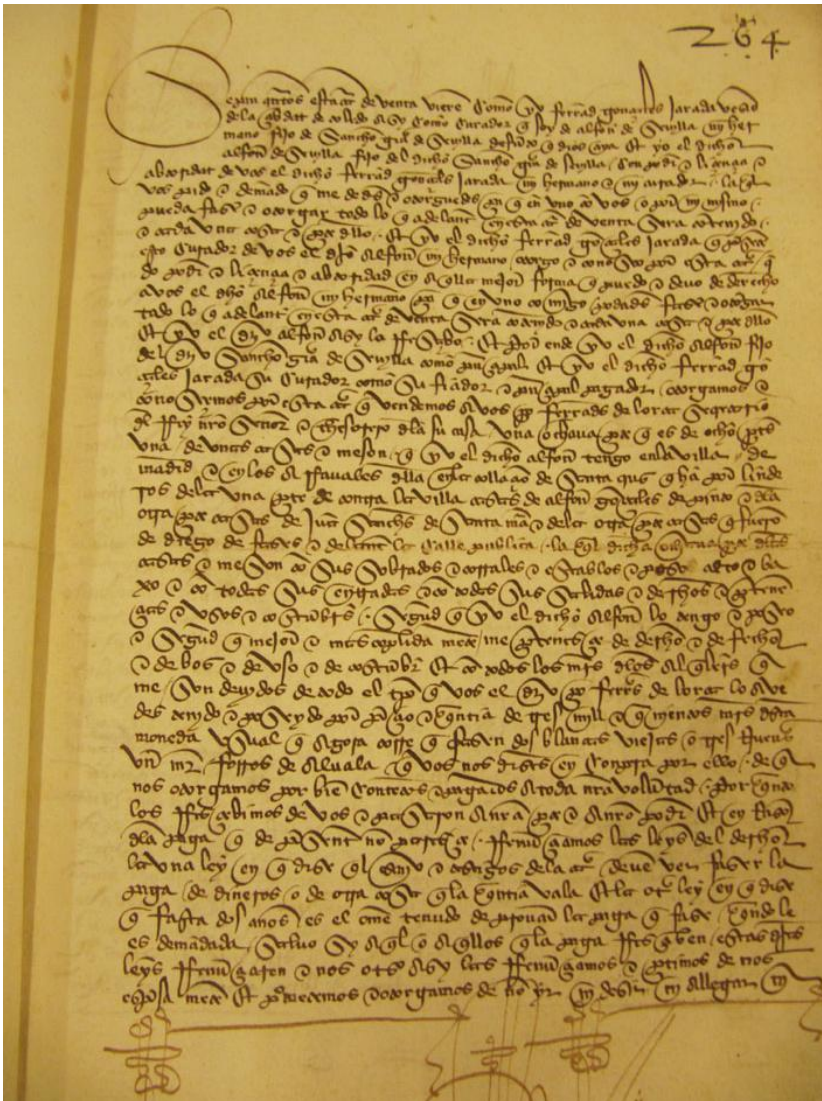 264
Sepan quantos esta carta de venta vieren como yo ferrad gonçales jarada vesino
de la çibdat de toledo asy como curador que soy de alfon de Seuilla my her
mano fijo de Sancho garçia de Seuilla defunto que dios aya Et yo el dicho
alfon de Seuilla fijo del dicho Sancho garçia de Seuilla con poder e liçençia e
abtoridat de vos el dicho ferrad gonçales jarada my hermano e my curador la qual
vos pido e demando que me dedes e otorguedes para que en uno con vos e por my mismo
pueda faser e otorgar todo lo que adelante en esta carta de venta sera contenido
e cada una cosa e parte dello Et yo el dicho ferrad gonçales jarada que presente
esto curador de vos el dicho alfon my hermano otorgo e conosco por esta carta que
do poder e liçençia e abtoridad en aquella mejor forma que puedo e deuo de derecho
a vos el dicho alfon my hermano para que en uno comigo podades faser e otorgar
todo lo que adelante en esta carta de venta sera contenido e cada una cosa e parte dello
Et yo el dicho alfon asy la Resçibo Et por ende yo el dicho alfon fijo
del dicho Sancho garçia de Seuilla como prinçipal Et yo el dicho ferrad gon
çales jarada su curador como su fiador e prinçipal pagador otorgamos e
conosçemos por esta carta que vendemos a vos pero ferrads de lorca Secretario
del Rey nuestro Señor e thesorero dela su casa una ochaua parte que es de ocho partes
una de unas casas e meson que yo el dicho alfon tengo en la villa de
madrid e en los arrauales della en la collaçion de Santa crus que ha por linde
ros de la una parte de contra la villa casas de alfon gonçales de pinto e dela
otra parte casas de juan Sanches de Santa maria e dela otra parte casas que fueron
de diego de e delante la calle publica la qual dicha ochaua parte delas
casas e meson con sus sobrados e corrales e establos e poso alto e ba
xo e con todas sus entradas e con todas sus salidas e derechos e pertenen
çias e usos e costumbres Segund que yo el dicho alfon lo tengo e poseo
e Segund que mejor e mas conplida mente me pertenesçe de derecho e de fecho
e de bos e de uso e de costumbre Et con todos los mrs delos alquileres que
me son deuidos de todo el tienpo que vos el dicho pero ferrads de lorca lo aue
des tenido e poseydo por preçio e quantia de tres mill e quinientos mrs desta
moneda usual que agora corre que fasen dos blancas viejas o tres nueuas
un mr forros de alcauala que vos nos distes en conpra por ello de que
nos otorgamos por bien contentos e pagados a toda nuestra voluntad por quanto
los Resçebimos de vos e pasaron a nuestra parte e a nuestro poder Et en Rason
dela paga que de presente non paresçe Renunçiamos las leys del derecho
la una ley en que dise quel escriuano e testigos dela carta deuen ver faser la
paga de dineros o de otra cosa que la quantia vala Et la otra ley en que dise
que fasta dos años es el ome tenudo de prouar la paga que fase quando le
es demandada Saluo Sy aquel o aquellos que la paga Resçiben estas dichas
leys Renunçiaren e nos otros asy las Renunçiamos e partimos de nos
espresa mente Et prometemos e otorgamos de non yr ny desir ny allegar ny